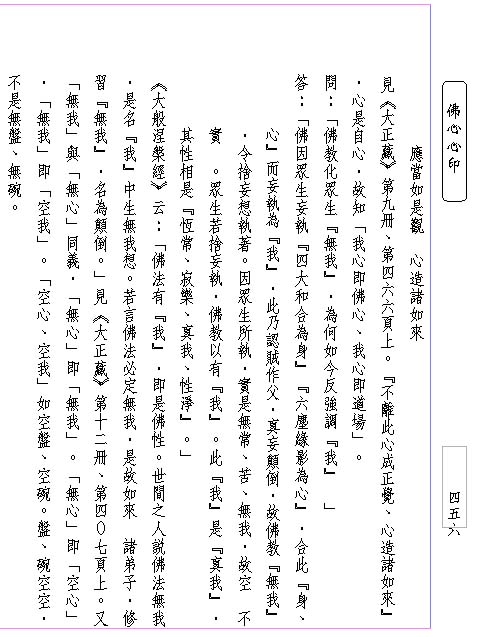 佛心心印
應當如是觀　心造諸如來
見《大正藏》第九冊、第四六六頁上。『不離此心成正覺、心造諸如來』
．心是自心，故知「我心即佛心、我心即道場」。
問：「佛教化眾生『無我』，為何如今反強調『我』　」
答：「佛因眾生妄執『四大和合為身』『六塵緣影為心』，合此『身、
心』而妄執為『我』，此乃認賊作父，真妄顛倒，故佛教『無我』
．令捨妄想執著。因眾生所執，實是無常、苦、無我，故空　不
實　。眾生若捨妄執，佛教以有『我』。此『我』是『真我』．
其性相是『恆常、寂樂、真我、性淨』。」
《大般涅槃經》云：「佛法有『我』，即是佛性。世間之人說佛法無我
．是名『我』中生無我想。若言佛法必定無我，是故如來　諸弟子，修
習『無我』，名為顛倒。」見《大正藏》第十二冊、第四０七頁上。又
「無我」與「無心」同義，「無心」即「無我」。「無心」即「空心」
．「無我」即「空我」。「空心、空我」如空盤、空碗。盤、碗空空，
不是無盤、無碗。
四五六